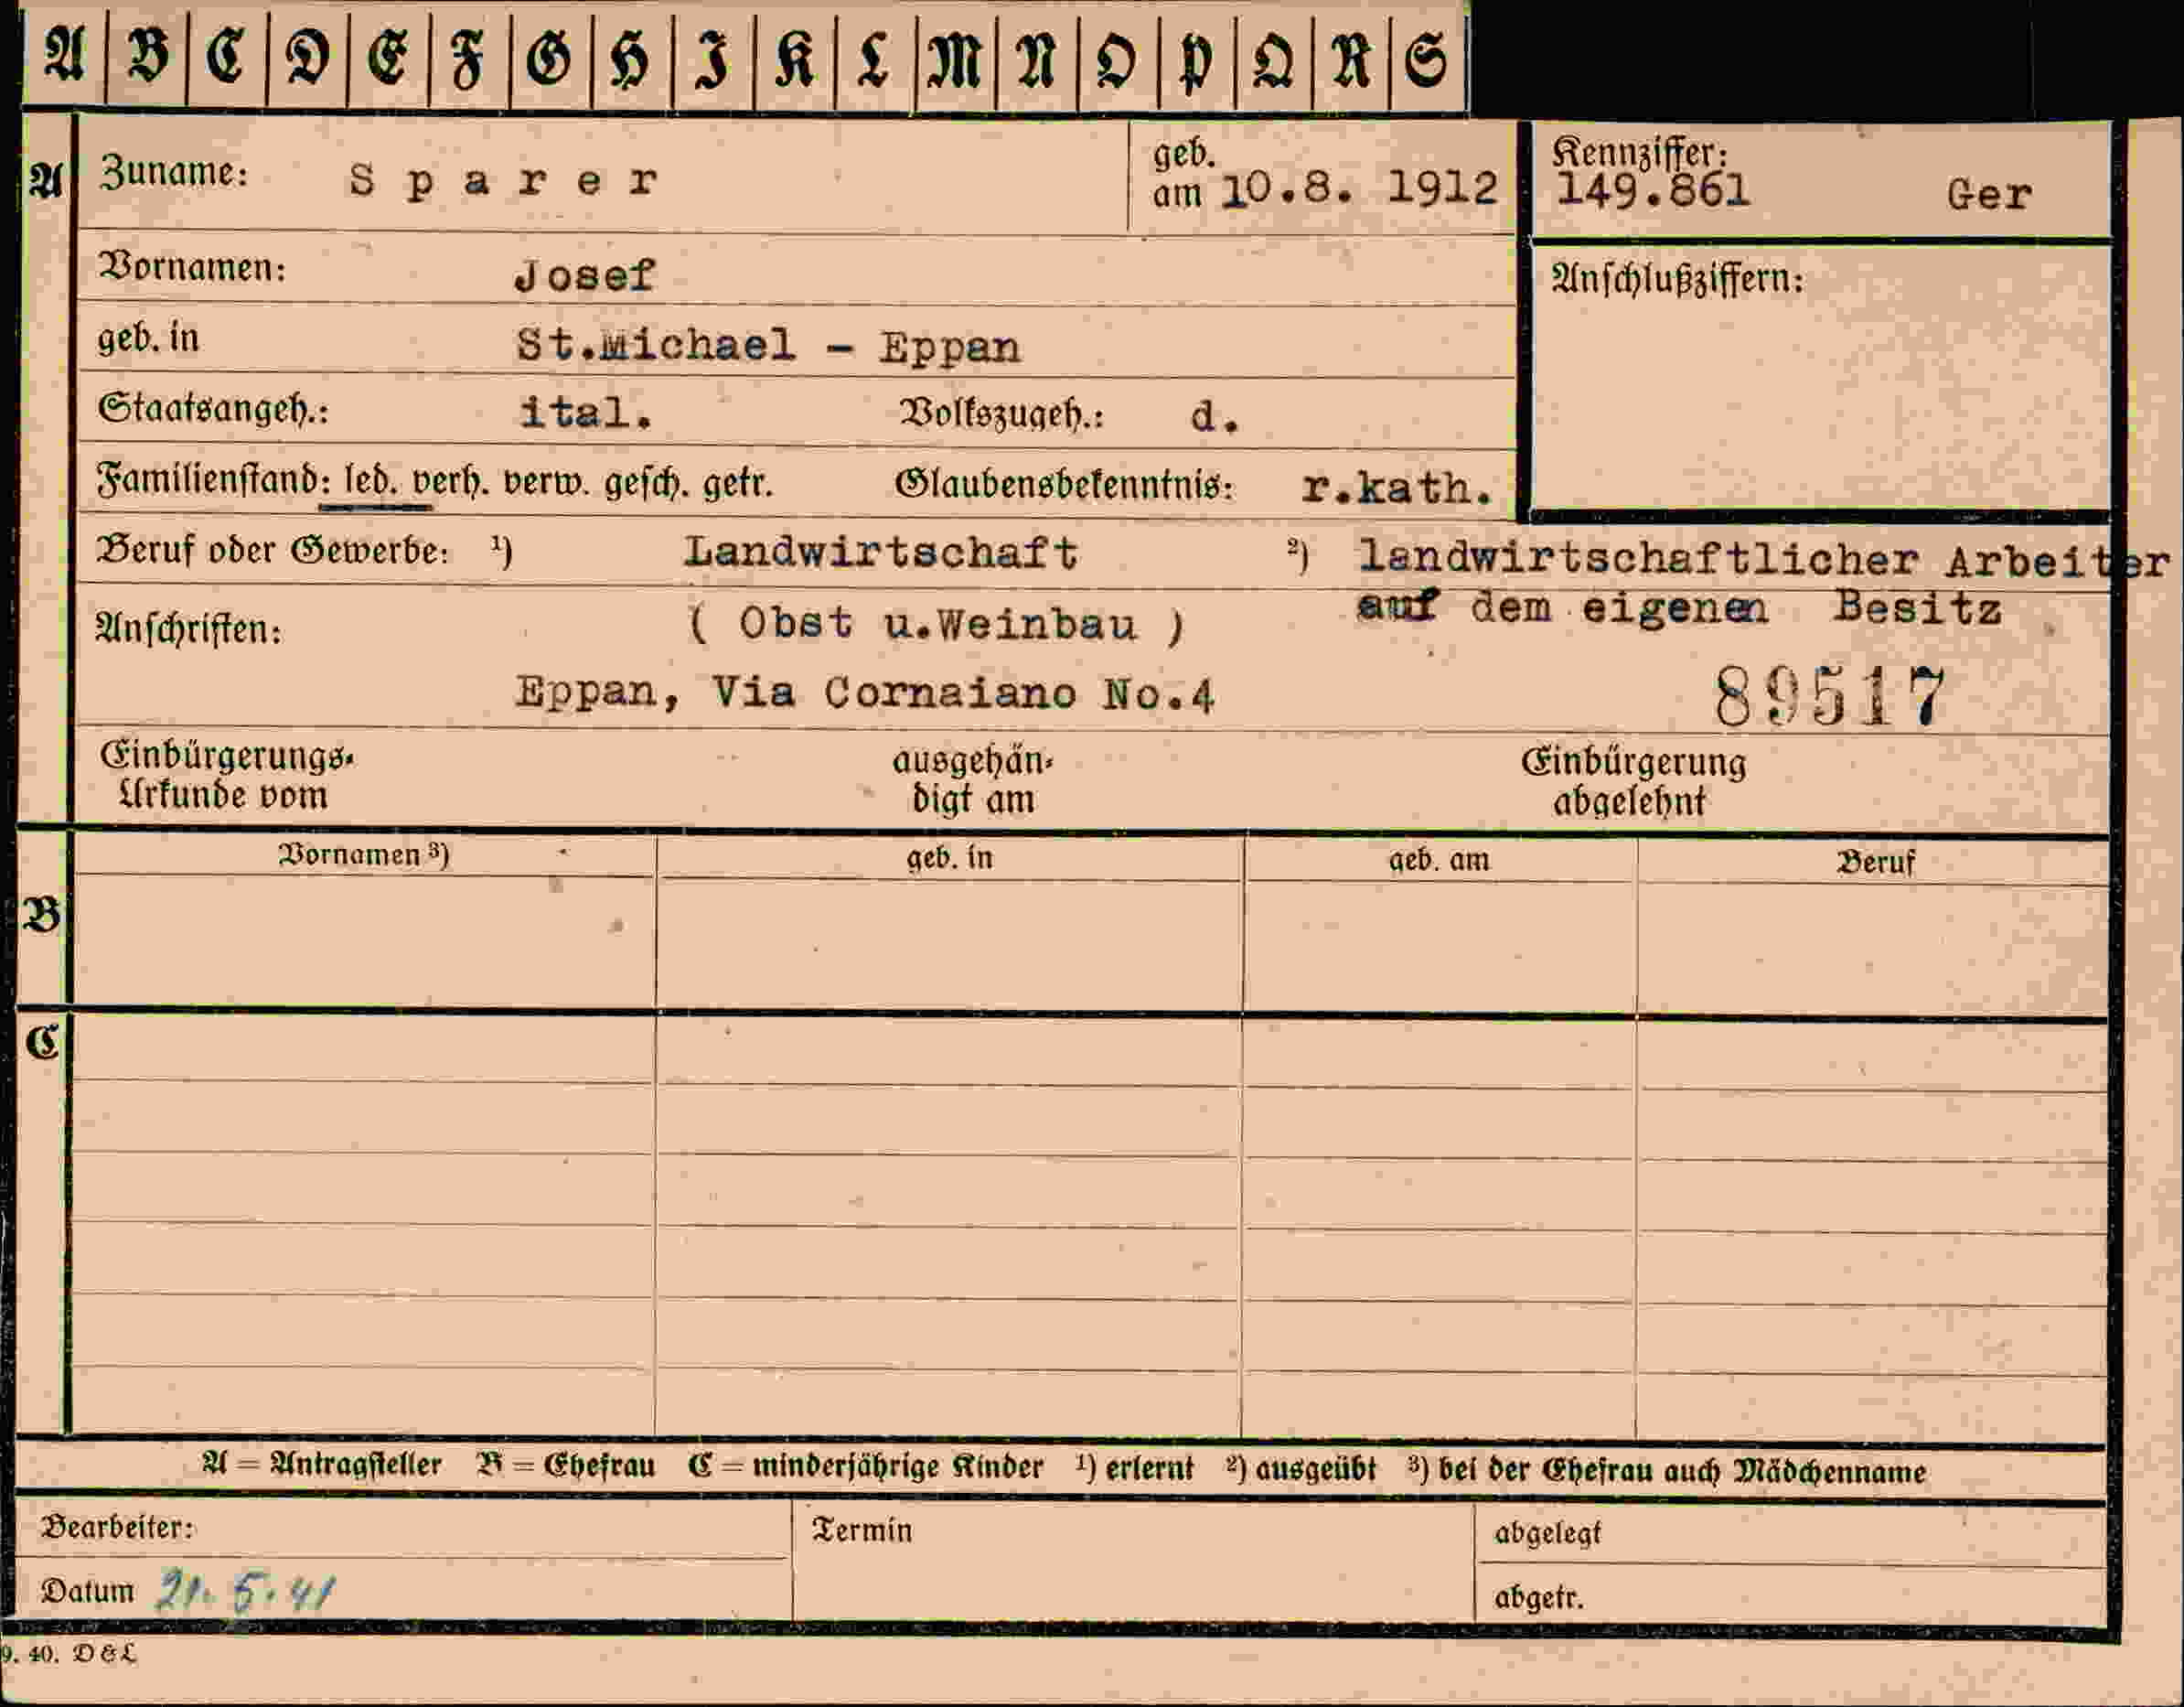 A B C D E F G H I K L M N O P Q R S
A Zuname: Sparer geb. am 10.8. 1912 Kennziffer: 149.861 Ger
Vornamen: Josef Anschlußziffern:
geb. in St.Michael - Eppan
Staatsangeh.: ital. Volkszugeh.: d.
Familienstand: led. verh. verw. gesch. getr. Glaubensbekenntnis: r.kath.
Beruf oder Gewerbe: ¹) Landwirtschaft ²) landwirtschaftlicher Arbeiter
Anschriften: ( Obst u.Weinbau ) auf dem eigenen Besitz
Eppan, Via Cornaiano No.4 89517
Einbürgerungs- ausgehän- Einbürgerung
Urkunde vom digt am abgelehnt
Vornamen ³) geb. in geb. am Beruf
B
C
A = Antragsteller B = Ehefrau C = minderjährige Kinder ¹) erlernt ²) ausgeübt ³) bei der Ehefrau auch Mädchenname
Bearbeiter: Termin abgelegt
Datum 21. 5. 41 abgetr.
9. 40. D & L